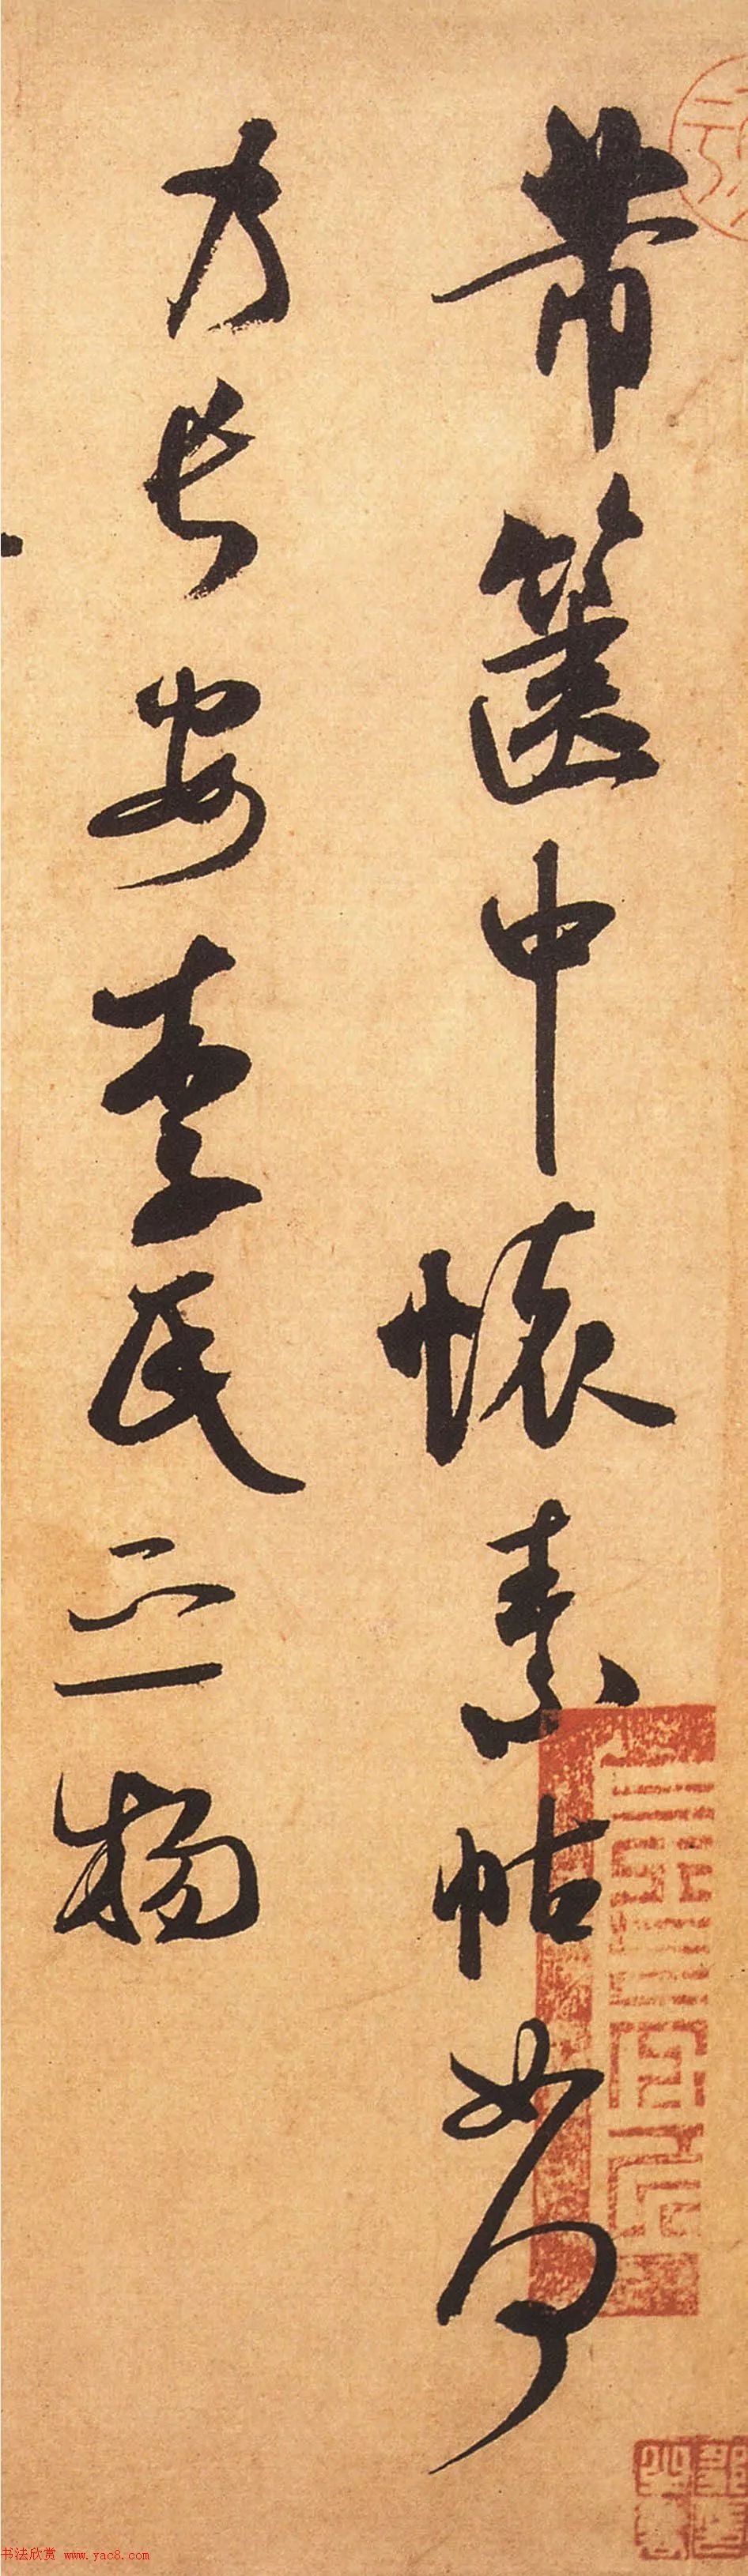 帶篋中懷素帖如何
乃長安李氏之物
书法欣赏 www.yac8.com